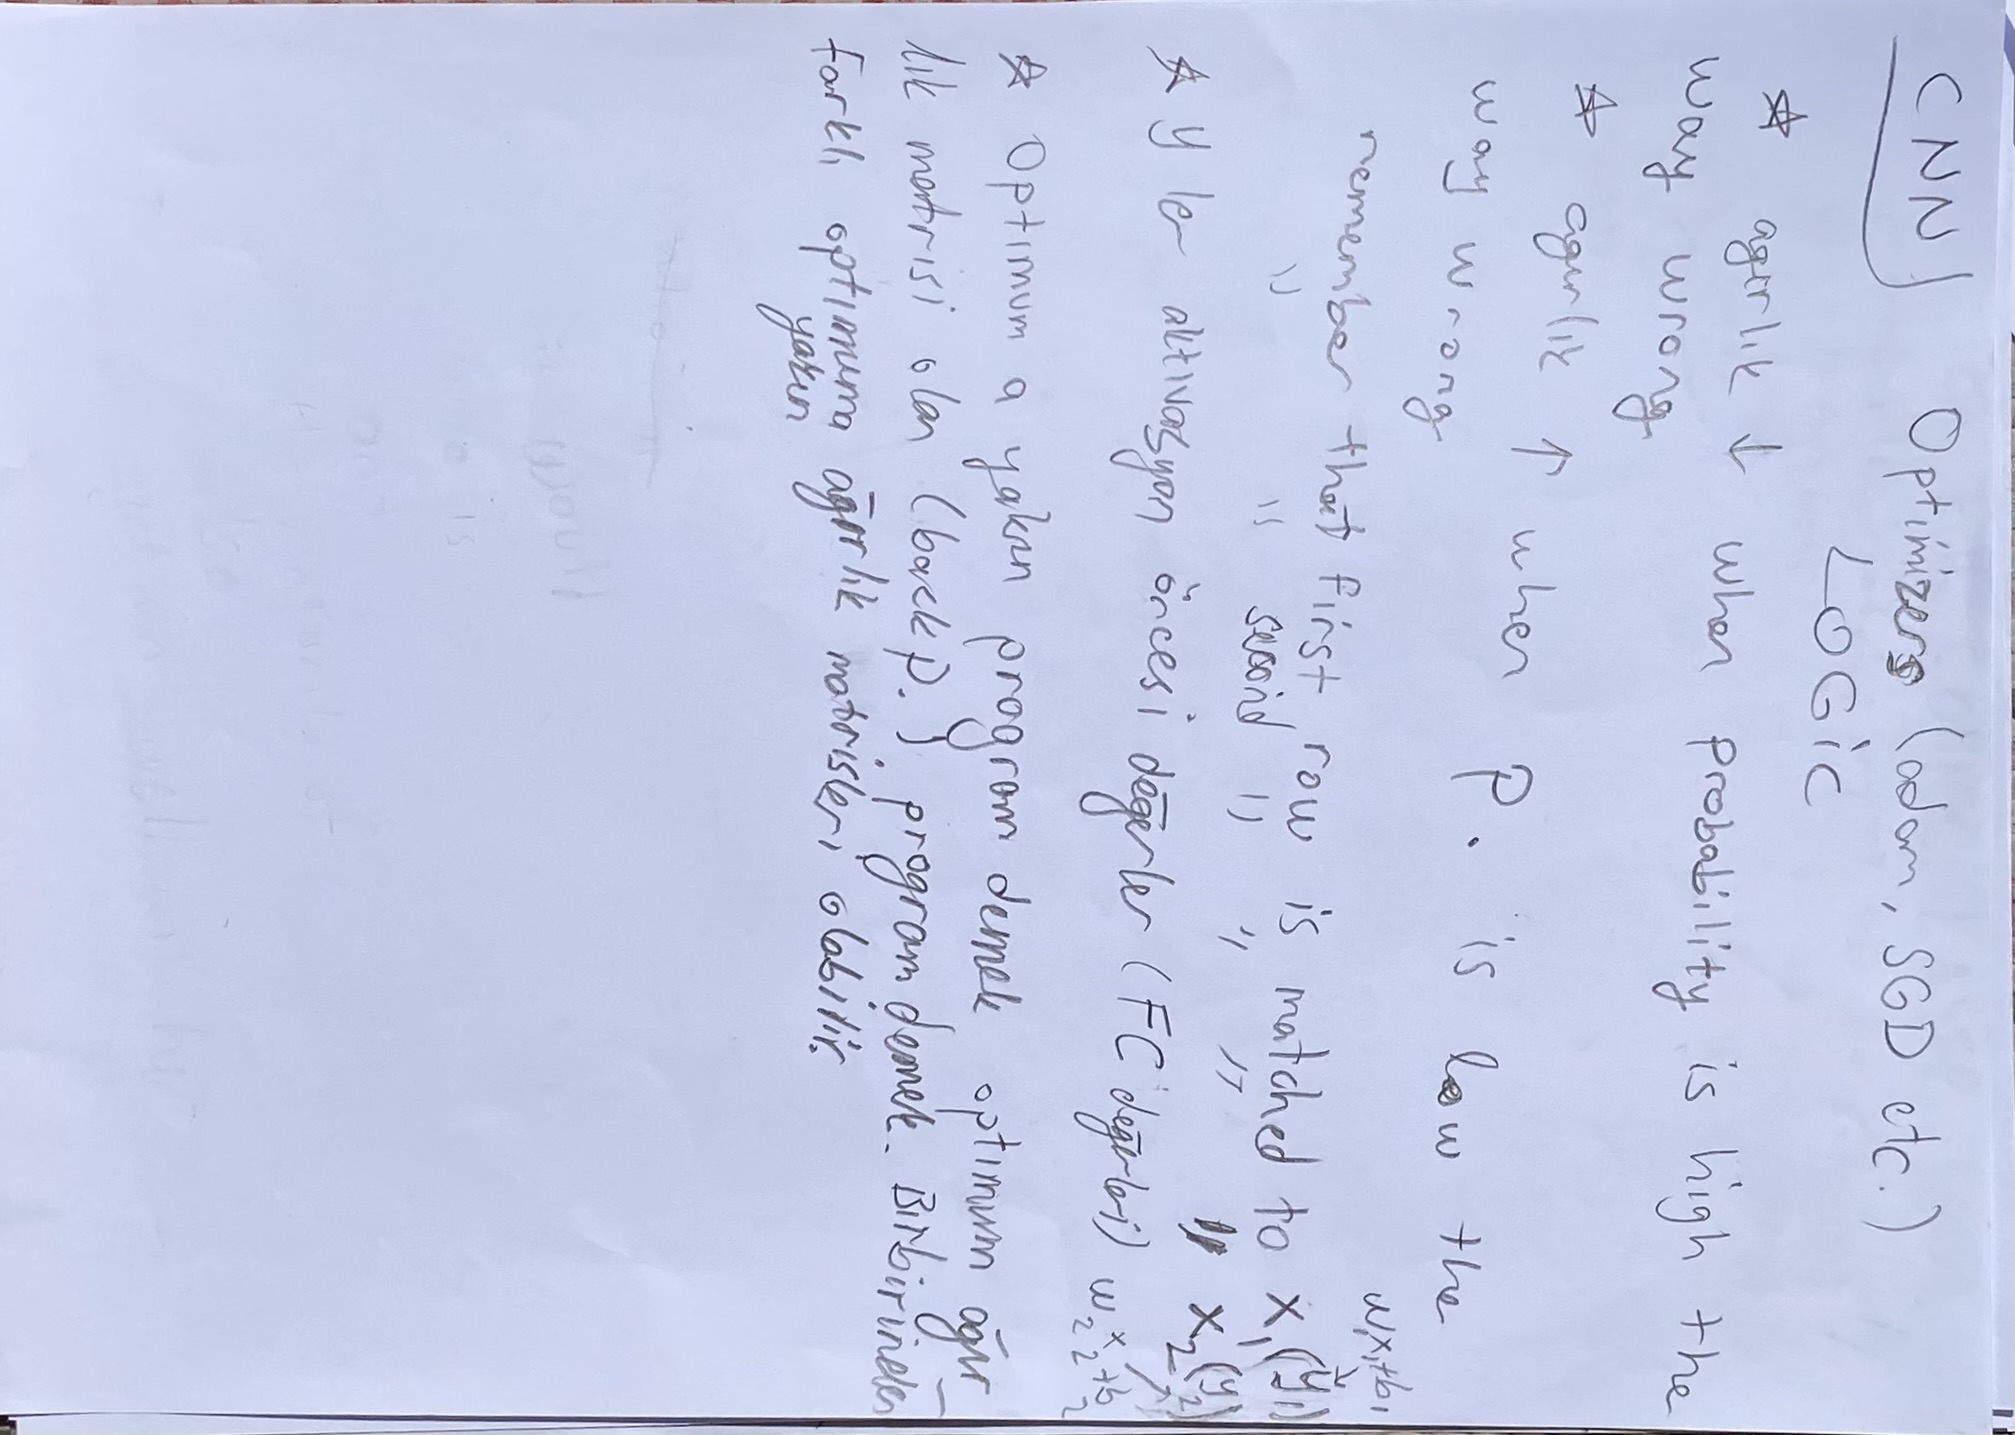 CNN Optimizers (adam, SGD etc.)
LOGiC
☆ agırlık ↓ when probability is high the
way wrong
☆ agırlık ↑ when P. is low the
way wrong
w₁x₁+b₁
remember that first row is matched to x₁(y₁)
" " second " " " " x₂(y₂)
☆ y ler aktivasyon öncesi değerler (FC değerleri) w₂x₂+b₂
☆ Optimum a yakın program demek optimum ağır-
lık matrisi olan (back p.) program demek. Birbirinden
farklı optimuma ağırlık matrisleri olabilir.
yakın